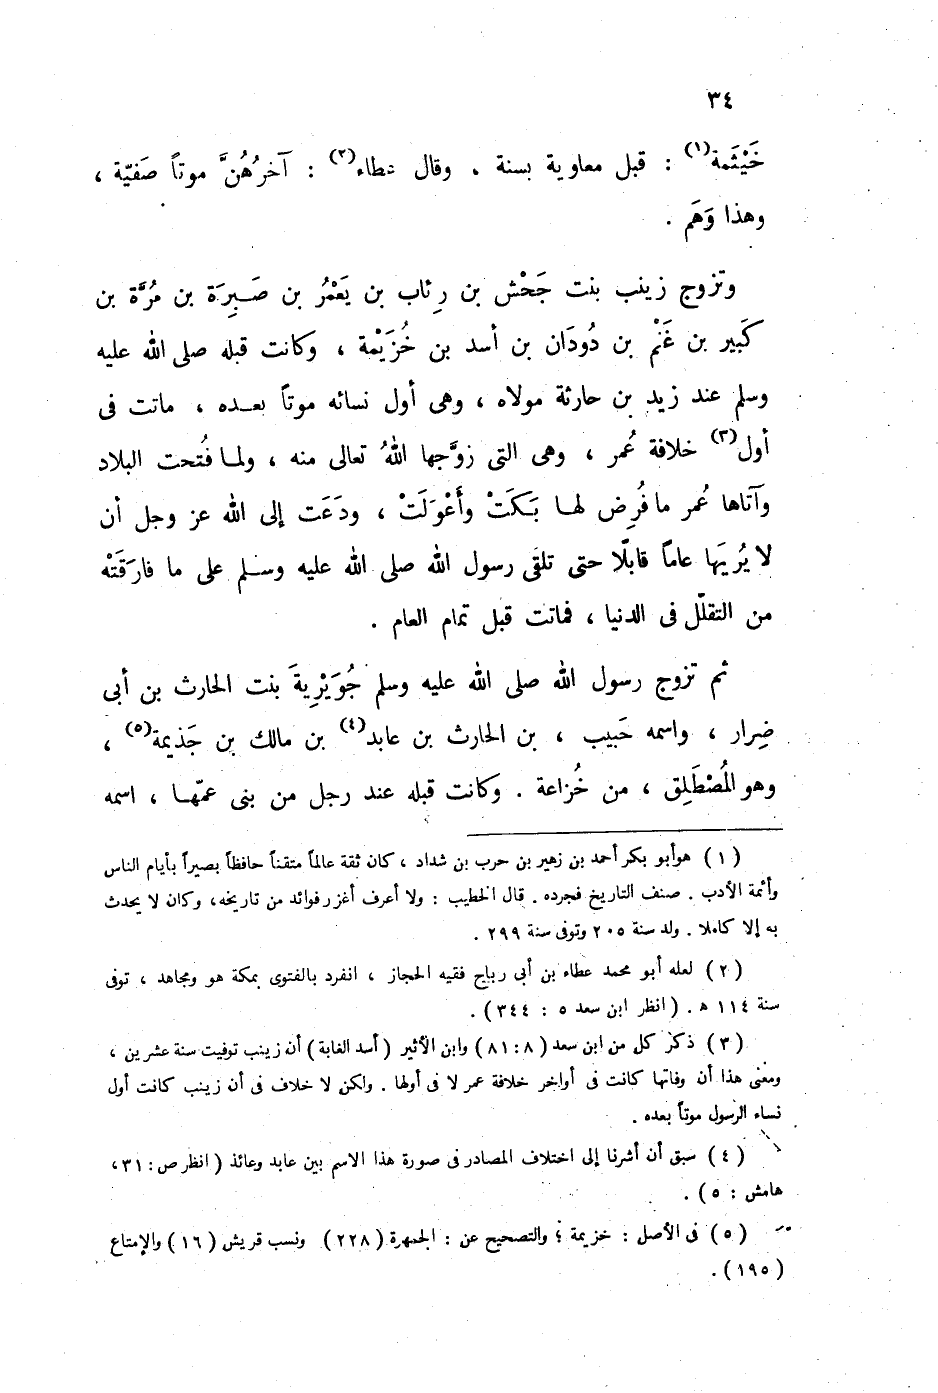 ٣٤
خَيْثَمة(١) : قبل معاوية بسنة . وقال عطاء(٢) : آخرُهُنَّ موتاً صَفيّة ،
وهذا وَهَم .
وتزوج زينب بنت جَحْش بن رِئاب بن يَعْمُر بن صَبِرَة بن مُرَّة بن
كَبير بن غَنْم بن دُودَان بن أسد بن خُزَيْمة ، وكانت قبله صلى الله عليه
وسلم عند زيد بن حارثة مولاه ، وهى أول نسائه موتاً بعده ، ماتت فى
أول(٣) خلافة عُمر ، وهى التى زوَّجها اللهُ تعالى منه ، ولما فُتحت البلاد
وآتاها عُمر ما فُرِض لها بَكَتْ وأَعْوَلَتْ ، ودَعَت إلى الله عز وجل أن
لا يُريَها عاماً قابلًا حتى تلقَى رسول الله صلى الله عليه وسلم على ما فارَقَتْه
من التقلّل فى الدنيا ، فماتت قبل تمام العام .
ثم تزوج رسول الله صلى الله عليه وسلم جُوَيْرِيةَ بنت الحارث بن أبى
ضِرار ، واسمه حَبيب ، بن الحارث بن عابد(٤) بن مالك بن جَذيمة(٥) ،
وهو المُصْطَلِق ، من خُزاعة . وكانت قبله عند رجل من بنى عمّها ، اسمه
(١) هو أبو بكر أحمد بن زهير بن حرب بن شداد ، كان ثقة عالماً متقناً حافظاً بصيراً بأيام الناس
وأئمة الأدب . صنف التاريخ فجرده . قال الخطيب : ولا أعرف أغزر فوائد من تاريخه، وكان لا يحدث
به إلا كاملا . ولد سنة ٢٠٥ وتوفى سنة ٢٩٩ .
(٢) لعله أبو محمد عطاء بن أبى رباح فقيه الحجاز ، انفرد بالفتوى بمكة هو ومجاهد ، توفى
سنة ١١٤ ه . (انظر ابن سعد ٥ : ٣٤٤) .
(٣) ذكر كل من ابن سعد (٨ : ٨١) وابن الأثير (أسد الغابة) أن زينب توفيت سنة عشرين ،
ومعنى هذا أن وفاتها كانت فى أواخر خلافة عمر لا فى أولها . ولكن لا خلاف فى أن زينب كانت أول
نساء الرسول موتاً بعده .
(٤) سبق أن أشرنا إلى اختلاف المصادر فى صورة هذا الاسم بين عابد وعائذ (انظر ص: ٣١،
هامش : ٥) .
(٥) فى الأصل : خزيمة ؛ والتصحيح عن : الجمهرة (٢٢٨) ونسب قريش (١٦) والإمتاع
(١٩٥) .